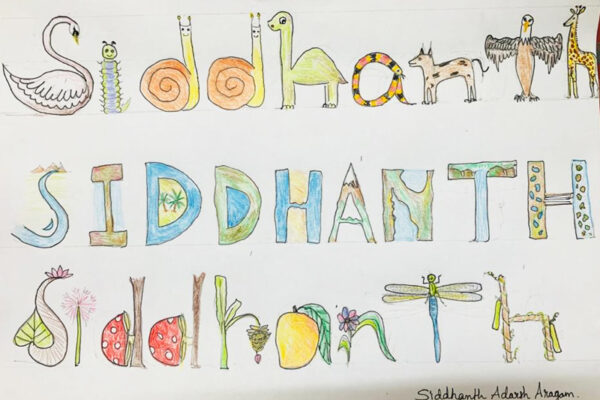 Siddhanth
SIDDHANTH
SiddhanTh
Siddhanth Adarsh Aragam.